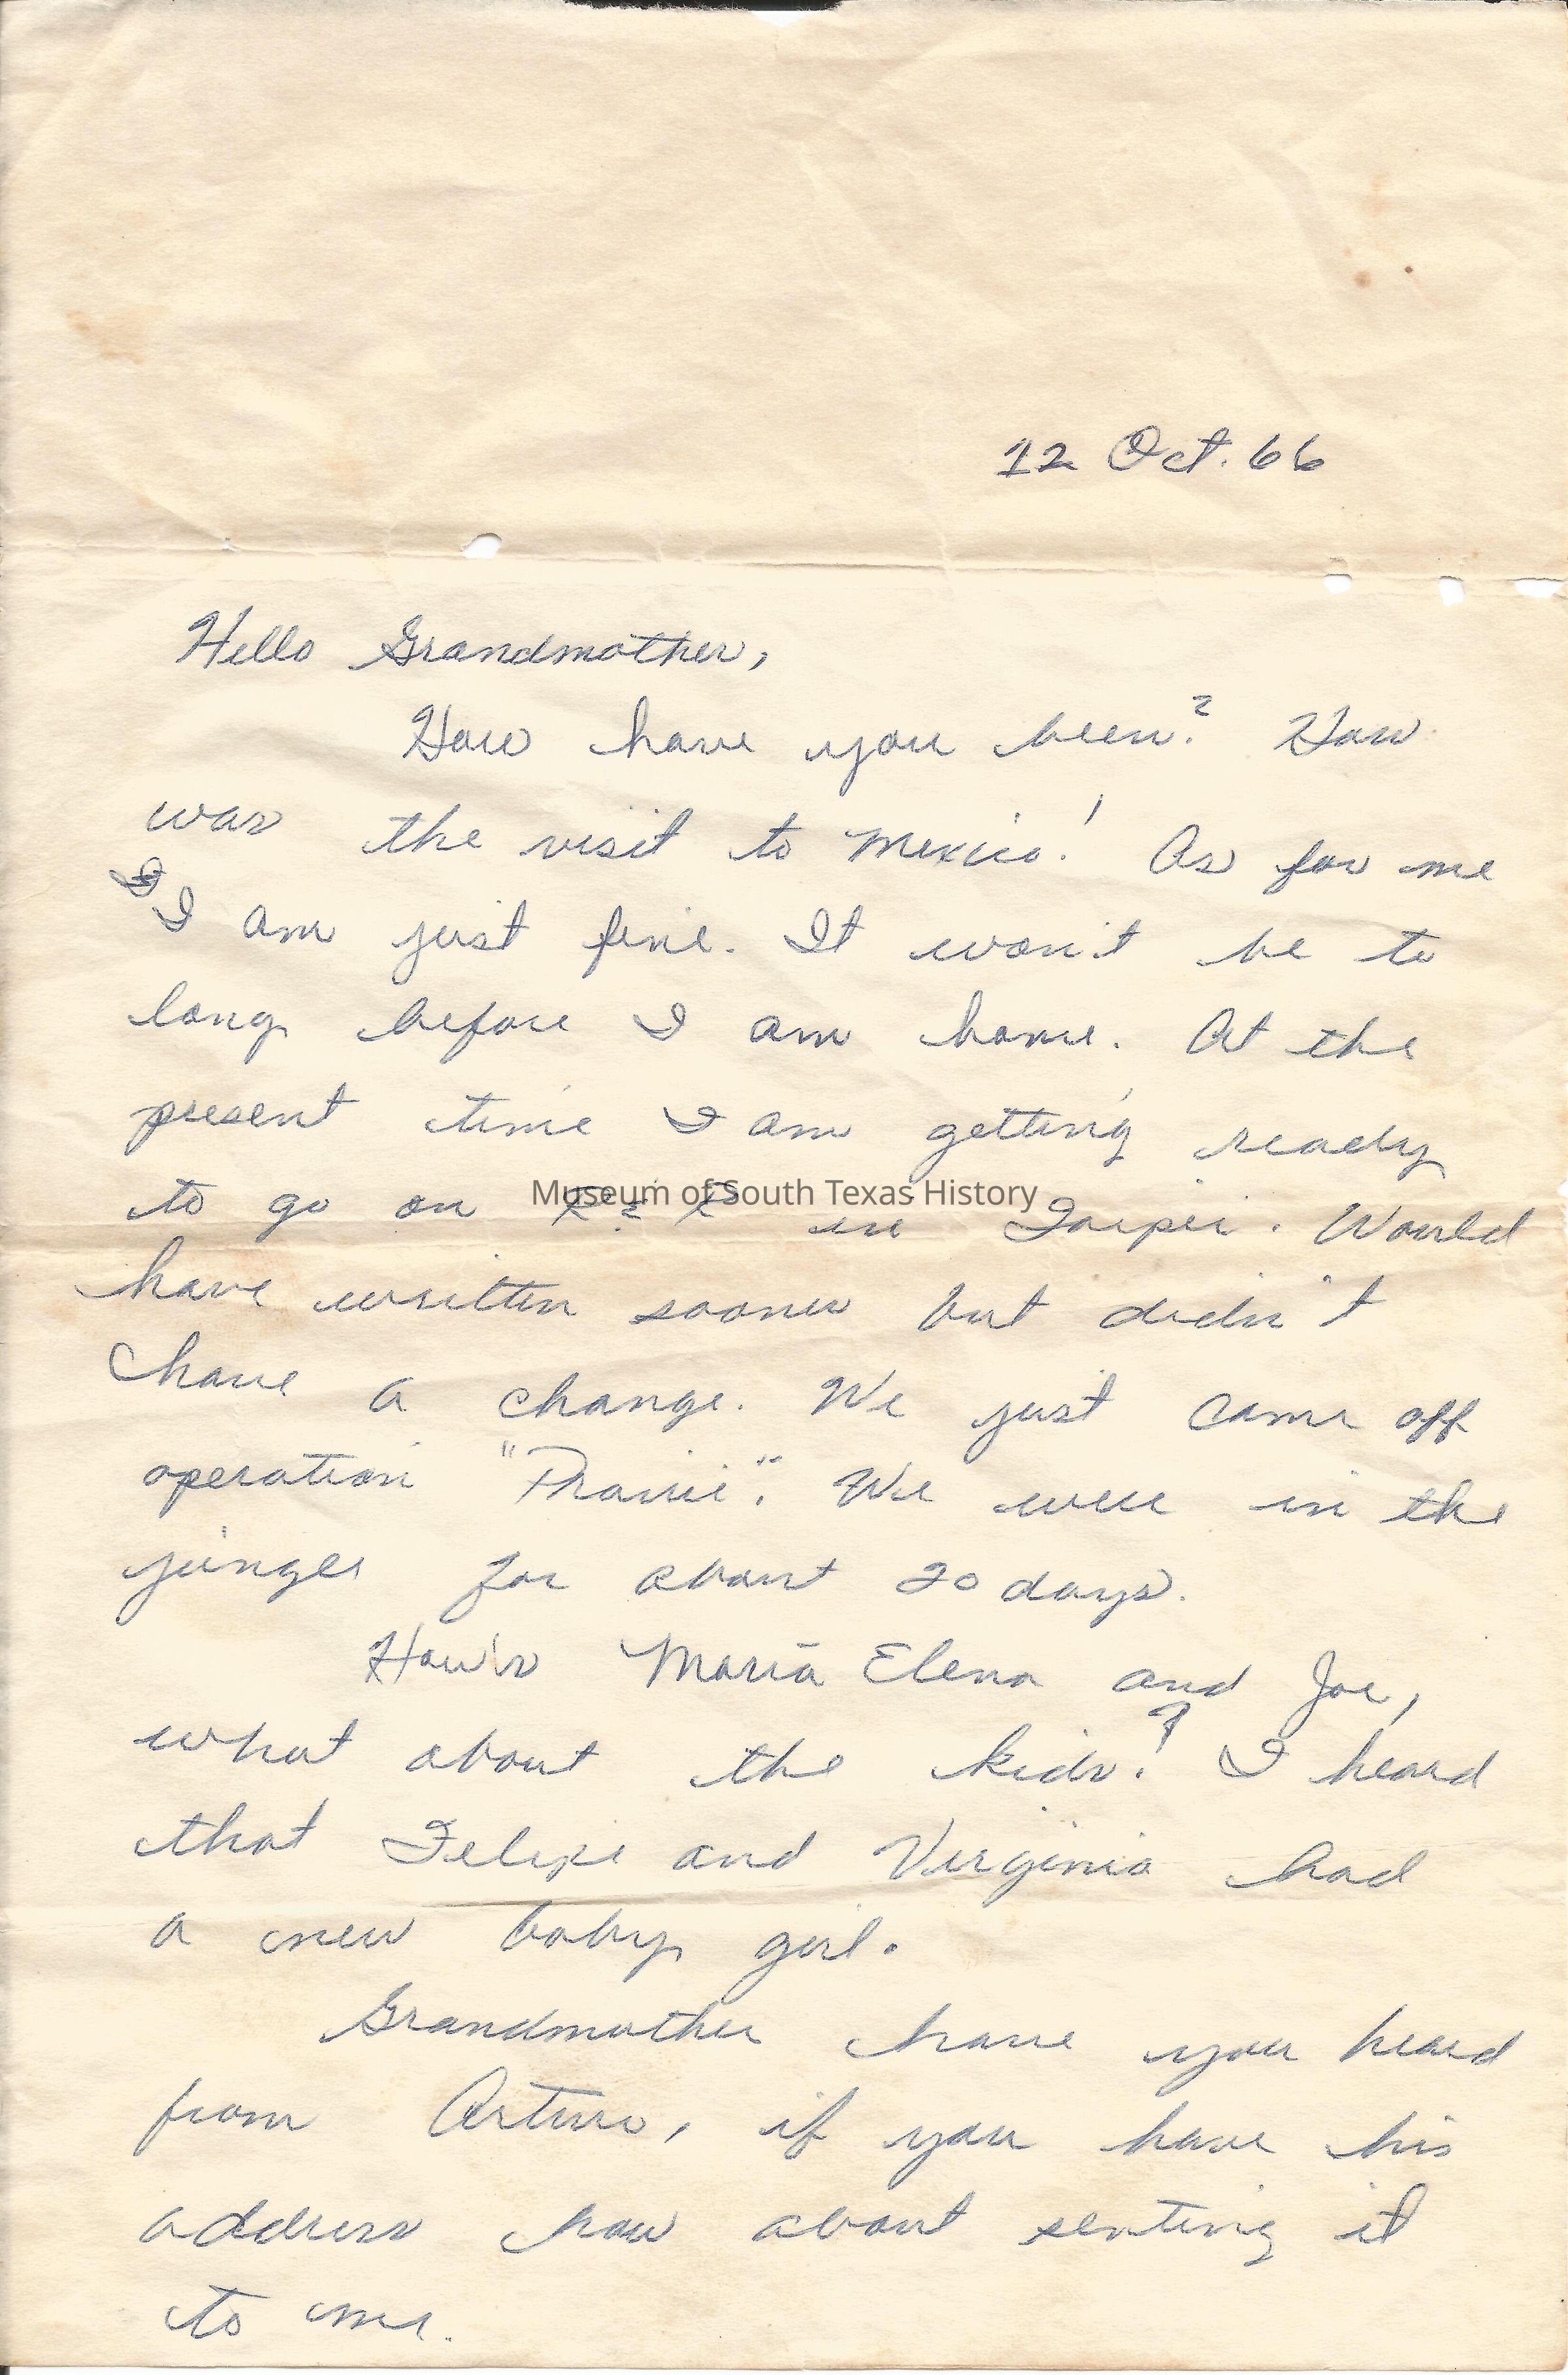 12 Oct. 66
Hello Grandmother,
How have you been? How
was the visit to Mexico! As for me
I I am just fine. It won't be to
long before I am home. At the
present time I am getting ready
to go on R & R in Taipei. Would
Museum of South Texas History
have written sooner but didn't
have a change. We just came off
operation "Prairie". We were in the
jungle for about 20 days.
How's Maria Elena and Joe,
what about the kids? I heard
that Felipe and Virginia had
a new baby girl.
Grandmother have you heard
from Arturo, if you have his
address how about senting it
to me.